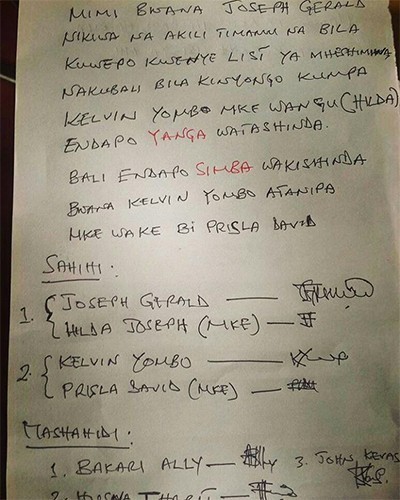 MIMI BWANA JOSEPH GERALD
NIKIWA NA AKILI TIMAMU NA BILA
KUWEPO KWENYE LIST YA MHESHIMIWA
NAKUBALI BILA KINYONGO KUMPA
KELVIN YOMBO MKE WANGU (HILDA)
ENDAPO YANGA WATASHINDA.
BALI ENDAPO SIMBA WAKISHINDA
BWANA KELVIN YOMBO ATANIPA
MKE WAKE BI PRISLA DAVID
SAHIHI:
1. JOSEPH GERALD —
HILDA JOSEPH (MKE) —
2. KELVIN YOMBO —
PRISLA DAVID (MKE) —
MASHAHIDI:
1. BAKARI ALLY — 3. JOHN,
2.